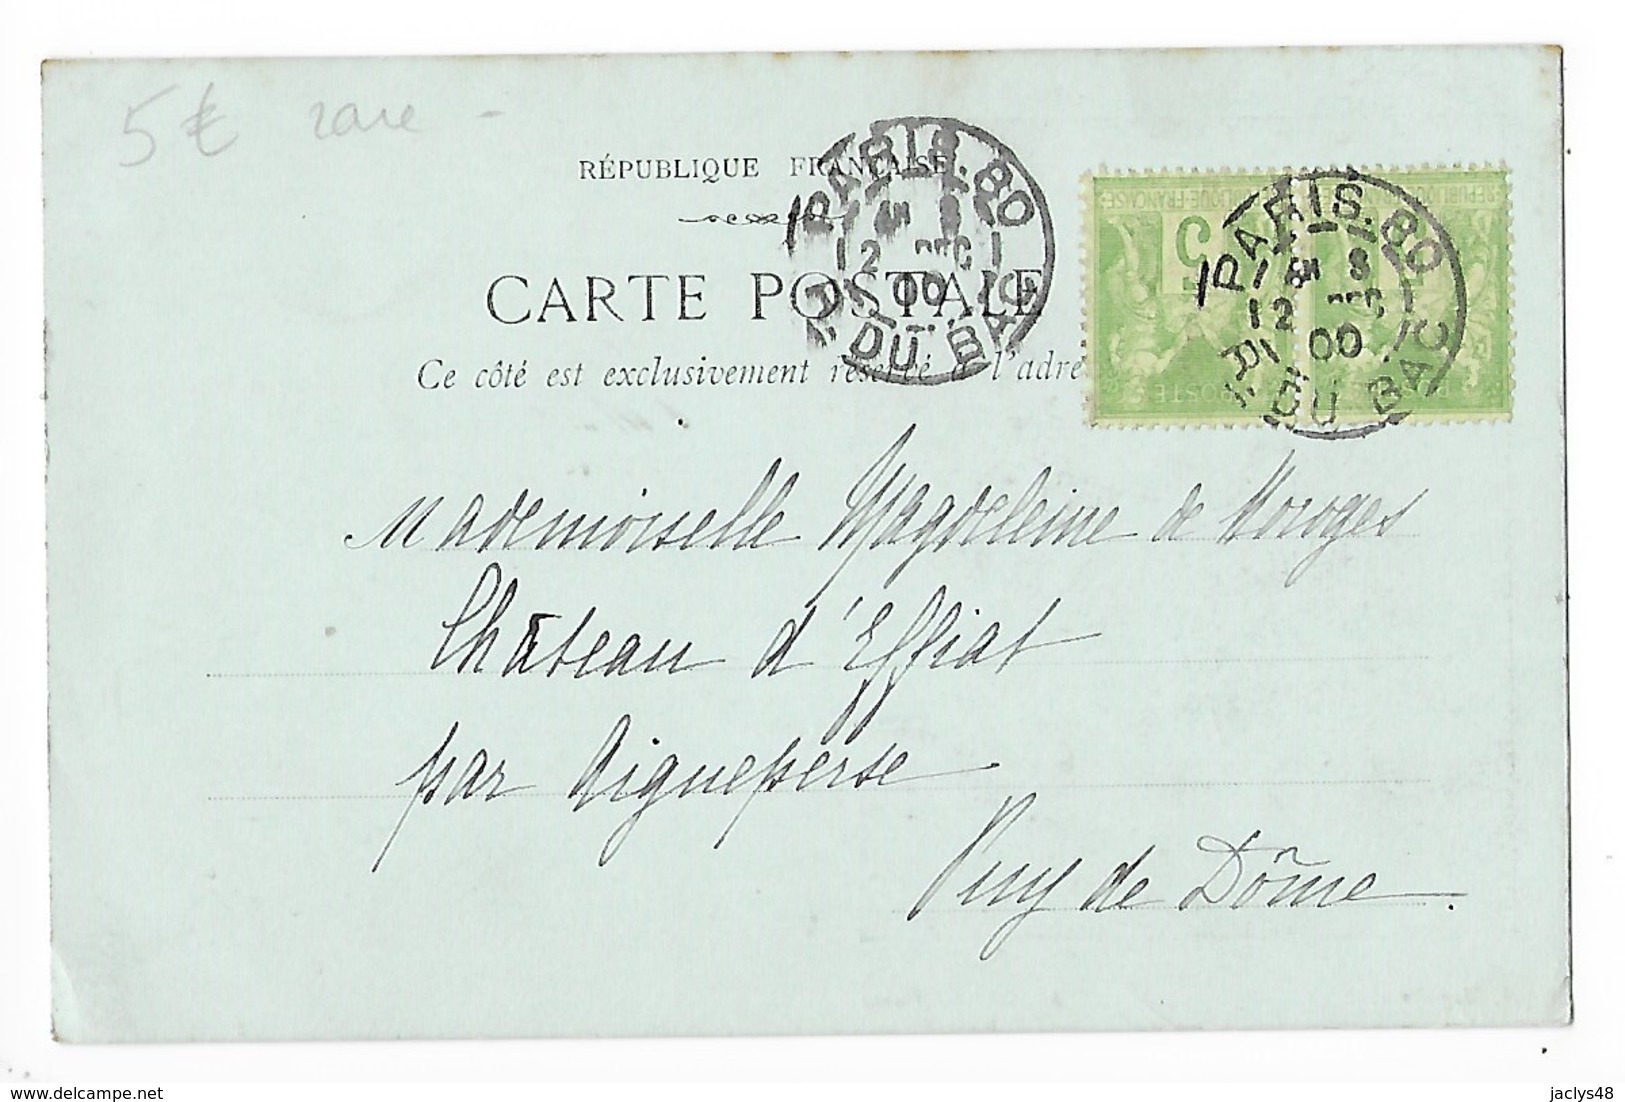 5€ rare -
RÉPUBLIQUE FRANÇAISE
CARTE POSTALE
Ce côté est exclusivement réservé à l'adre
PARIS.80
8
12 DEC
00
R. DU BAC
RÉPUBLIQUE-FRANÇAISE
5
POSTE
PARIS.80
8
12 DEC
00
R. DU BAC
Mademoiselle Magdeleine de Moroges
Château d'Effiat
par Aigueperse
Puy de Dôme.
delcampe.net
jaclys48